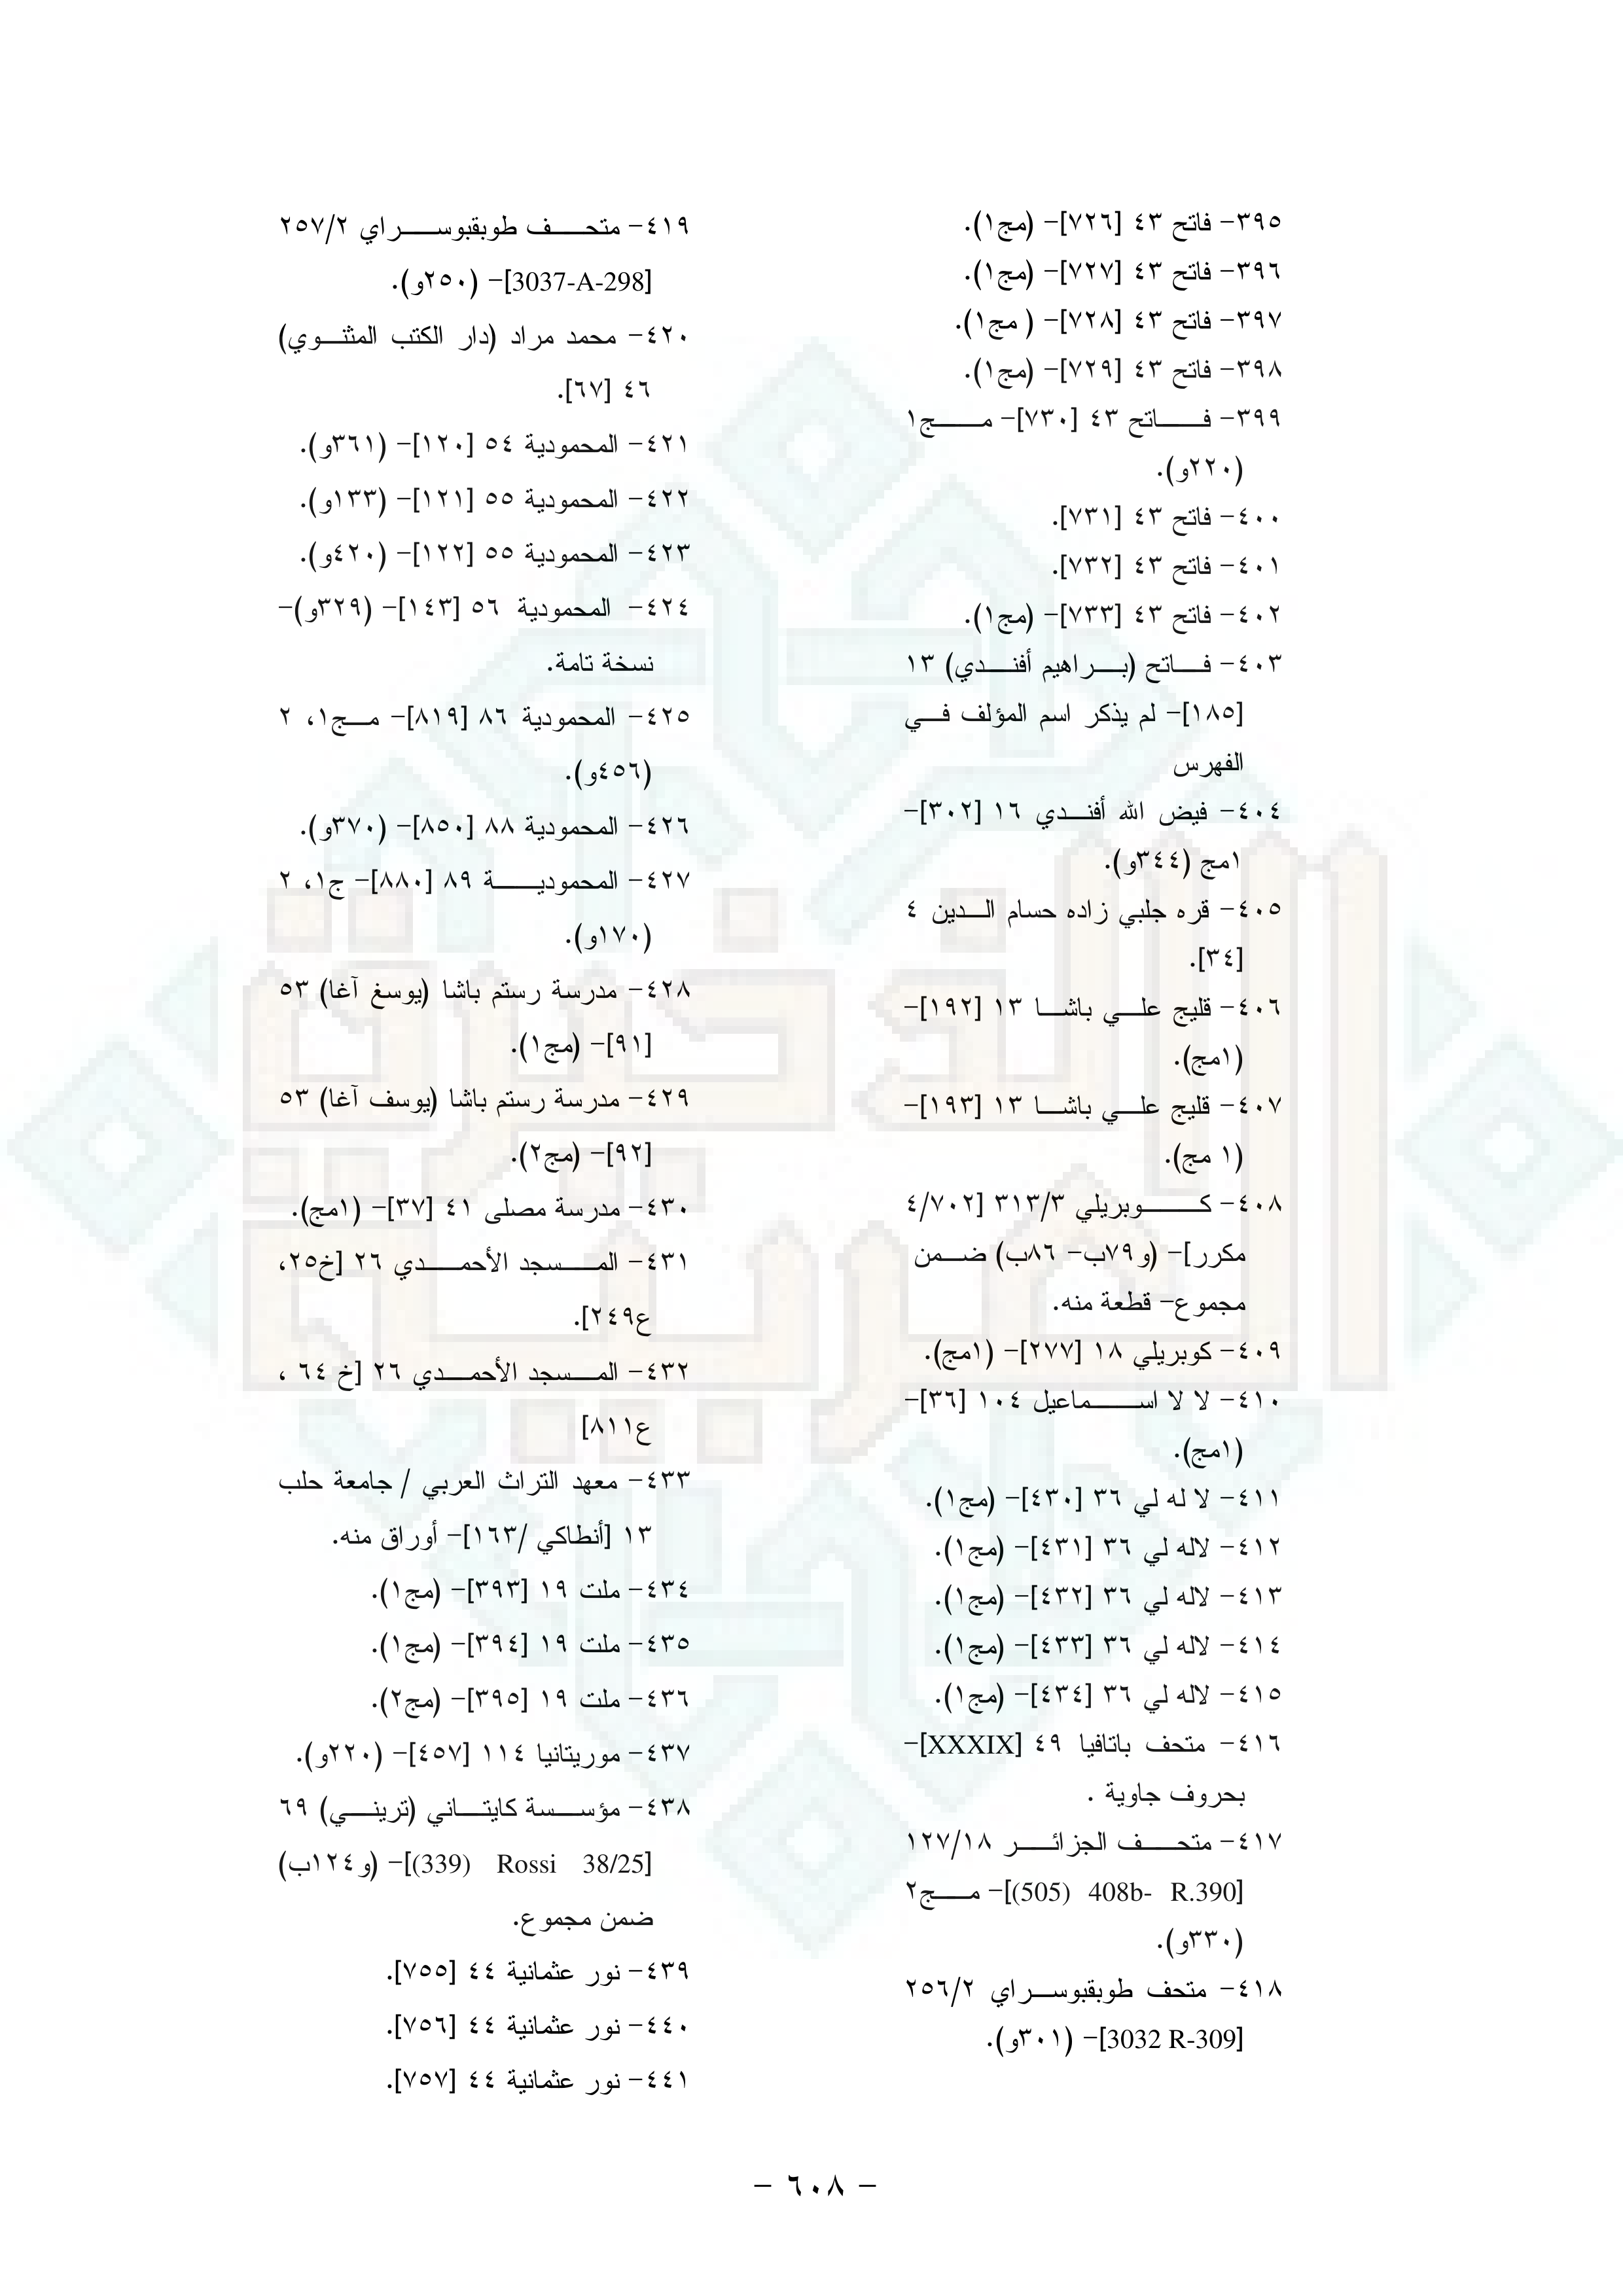 ٣٩٥- فاتح ٤٣ [٧٢٦]- (مج١).
٣٩٦- فاتح ٤٣ [٧٢٧]- (مج١).
٣٩٧- فاتح ٤٣ [٧٢٨]- ( مج١).
٣٩٨- فاتح ٤٣ [٧٢٩]- (مج١).
٣٩٩- فاتح ٤٣ [٧٣٠]- مج١
(٢٢٠و).
٤٠٠- فاتح ٤٣ [٧٣١].
٤٠١- فاتح ٤٣ [٧٣٢].
٤٠٢- فاتح ٤٣ [٧٣٣]- (مج١).
٤٠٣- فاتح (براهيم أفندي) ١٣
[١٨٥]- لم يذكر اسم المؤلف في
الفهرس
٤٠٤- فيض الله أفندي ١٦ [٣٠٢]-
١مج (٣٤٤و).
٤٠٥- قره جلبي زاده حسام الدين ٤
[٣٤].
٤٠٦- قليج علي باشا ١٣ [١٩٢]-
(١مج).
٤٠٧- قليج علي باشا ١٣ [١٩٣]-
(١ مج).
٤٠٨- كوبريلي ٣١٣/٣ [٤/٧٠٢
مكرر]- (و٧٩ب- ٨٦ب) ضمن
مجموع- قطعة منه.
٤٠٩- كوبريلي ١٨ [٢٧٧]- (١مج).
٤١٠- لا لا اسماعيل ١٠٤ [٣٦]-
(١مج).
٤١١- لا له لي ٣٦ [٤٣٠]- (مج١).
٤١٢- لاله لي ٣٦ [٤٣١]- (مج١).
٤١٣- لاله لي ٣٦ [٤٣٢]- (مج١).
٤١٤- لاله لي ٣٦ [٤٣٣]- (مج١).
٤١٥- لاله لي ٣٦ [٤٣٤]- (مج١).
٤١٦- متحف باتافيا ٤٩ [XXXIX]-
بحروف جاوية .
٤١٧- متحف الجزائر ١٢٧/١٨
[(505) 408b- R.390]- مج٢
(٣٣٠و).
٤١٨- متحف طوبقبوسراي ٢٥٦/٢
[3032 R-309]- (٣٠١و).
٤١٩- متحف طوبقبوسراي ٢٥٧/٢
[3037-A-298]- (٢٥٠و).
٤٢٠- محمد مراد (دار الكتب المثنوي)
٤٦ [٦٧].
٤٢١- المحمودية ٥٤ [١٢٠]- (٣٦١و).
٤٢٢- المحمودية ٥٥ [١٢١]- (١٣٣و).
٤٢٣- المحمودية ٥٥ [١٢٢]- (٤٢٠و).
٤٢٤- المحمودية ٥٦ [١٤٣]- (٣٢٩و)-
نسخة تامة.
٤٢٥- المحمودية ٨٦ [٨١٩]- مج١، ٢
(٤٥٦و).
٤٢٦- المحمودية ٨٨ [٨٥٠]- (٣٧٠و).
٤٢٧- المحمودية ٨٩ [٨٨٠]- ج١، ٢
(١٧٠و).
٤٢٨- مدرسة رستم باشا (يوسغ آغا) ٥٣
[٩١]- (مج١).
٤٢٩- مدرسة رستم باشا (يوسف آغا) ٥٣
[٩٢]- (مج٢).
٤٣٠- مدرسة مصلى ٤١ [٣٧]- (١مج).
٤٣١- المسجد الأحمدي ٢٦ [خ٢٥،
ع٢٤٩].
٤٣٢- المسجد الأحمدي ٢٦ [خ ٦٤ ،
ع٨١١]
٤٣٣- معهد التراث العربي / جامعة حلب
١٣ [أنطاكي /١٦٣]- أوراق منه.
٤٣٤- ملت ١٩ [٣٩٣]- (مج١).
٤٣٥- ملت ١٩ [٣٩٤]- (مج١).
٤٣٦- ملت ١٩ [٣٩٥]- (مج٢).
٤٣٧- موريتانيا ١١٤ [٤٥٧]- (٢٢٠و).
٤٣٨- مؤسسة كايتاني (تريني) ٦٩
[(339) Rossi 38/25]- (و١٢٤ب)
ضمن مجموع.
٤٣٩- نور عثمانية ٤٤ [٧٥٥].
٤٤٠- نور عثمانية ٤٤ [٧٥٦].
٤٤١- نور عثمانية ٤٤ [٧٥٧].
- ٦٠٨ -
الذخيرة
العربية